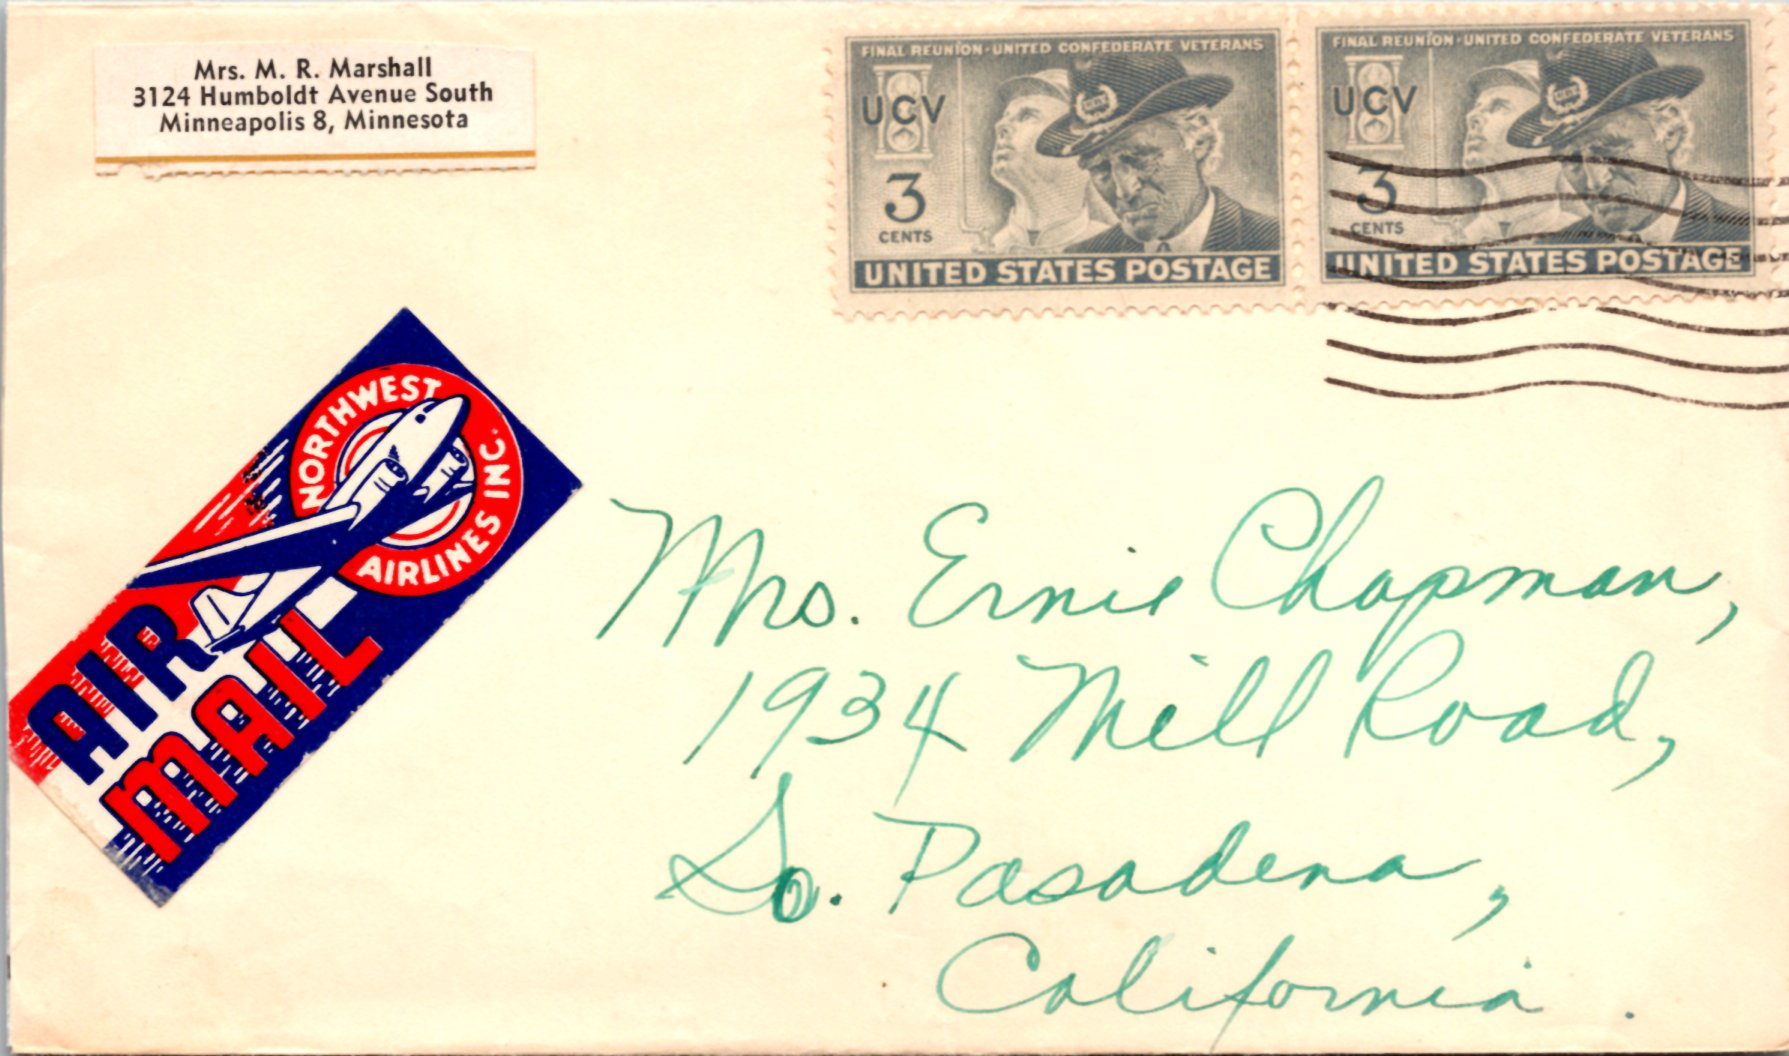 Mrs. M. R. Marshall
3124 Humboldt Avenue South
Minneapolis 8, Minnesota
FINAL REUNION · UNITED CONFEDERATE VETERANS
UCV
3
CENTS
UNITED STATES POSTAGE
FINAL REUNION · UNITED CONFEDERATE VETERANS
UCV
3
CENTS
UNITED STATES POSTAGE
NORTHWEST
AIRLINES INC.
AIR
MAIL
Mrs. Ernie Chapman,
1934 Mill Road,
So. Pasadena,
California.